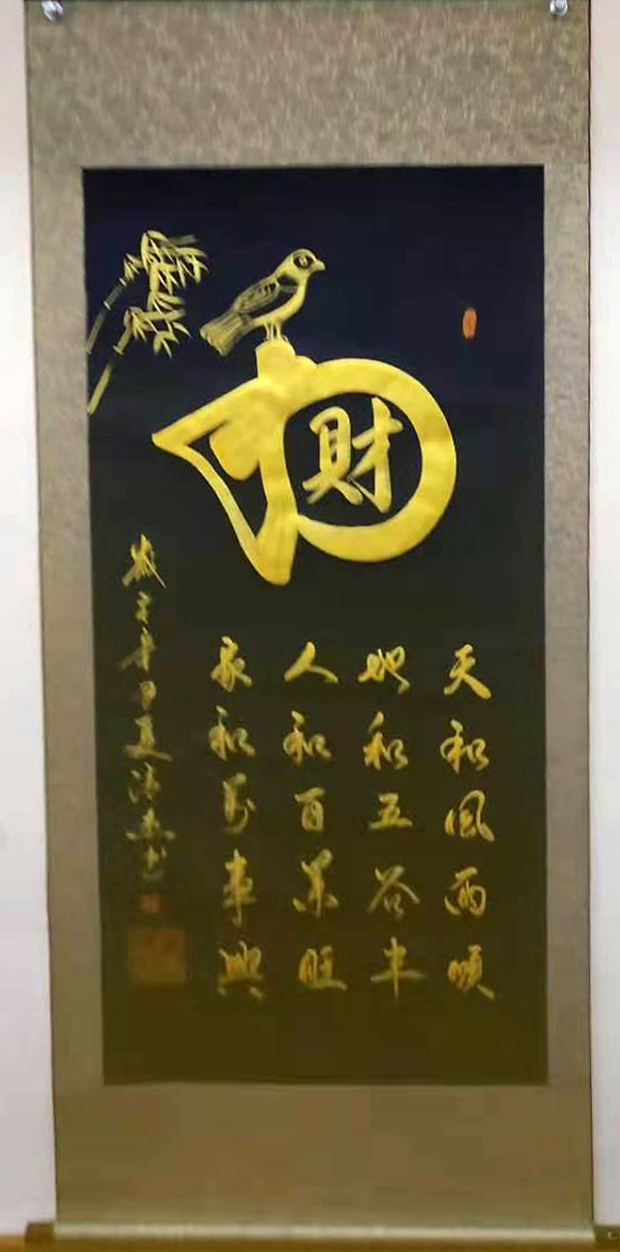 財
天和風雨順
地和五谷丰
人和百業旺
家和萬事興
歲辛丑夏